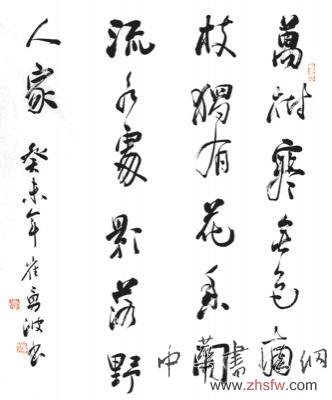 萬樹寒無色南
枝獨有花香聞
流水處影落野
人家
癸未年崔波书
中華書法網
www.zhsfw.com